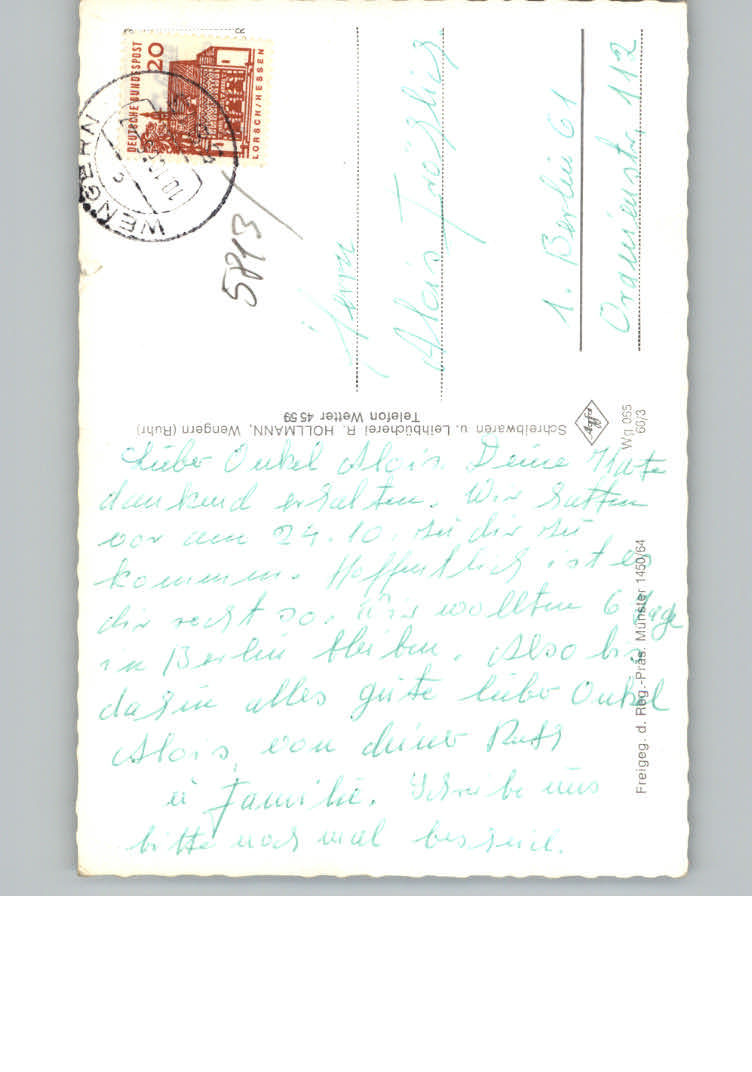 DEUTSCHE BUNDESPOST
20
LORSCH/HESSEN
WENGERN
5813
Herrn
Alois
1. Berlin 61
Oranienstr. 112
Schreibwaren u. Leihbücherei R. HOLLMANN, Wengern (Ruhr)
Telefon Wetter 4559
Wg 065
66/3
Freigeg. d. Reg.-Präs. Münster 1450/64
Lieber Onkel Alois. Deine Karte
dankend erhalten. Wir hatten
vor am 24.10. zu dir zu
kommen. Hoffentlich ist es
dir recht so. Wir wollten 6 Tage
in Berlin bleiben. Also bis
dahin alles gute lieber Onkel
Alois, von deiner Ruth
u Familie. Schreibe uns
bitte noch mal